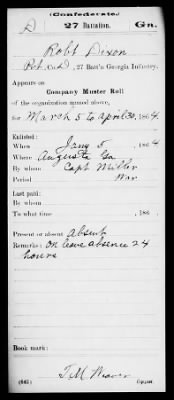 (Confederate.)
D 27 Battalion. Ga.
Robt Dixon
Pvt. Co. D, 27 Batt'n Georgia Infantry.
Appears on
Company Muster Roll
of the organization named above,
for March 5 to April 30, 1864.
Enlisted:
When Jany 5, 1864
Where Augusta Ga
By whom Capt Miller
Period War
Last paid:
By whom
To what time , 186 .
Present or absent Absent
Remarks: On leave absence 24
hours
Book mark:
T. M. Weaver
(642) Copyist.